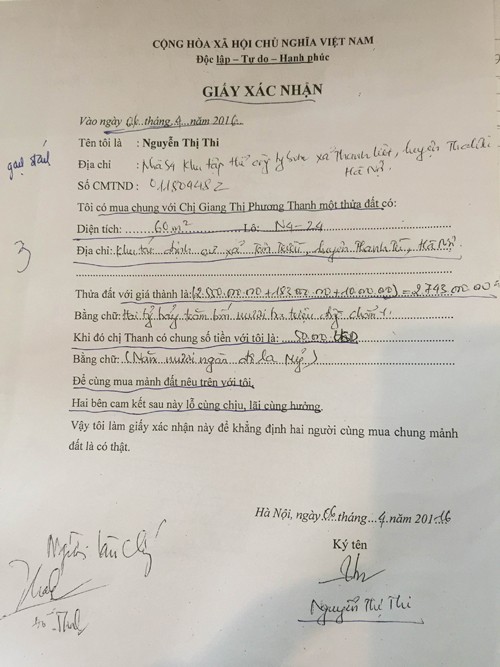 CỘNG HÒA XÃ HỘI CHỦ NGHĨA VIỆT NAM
Độc lập – Tự do – Hạnh phúc
GIẤY XÁC NHẬN
Vào ngày 06 tháng 4 năm 2016
Tên tôi là : Nguyễn Thị Thi
Địa chỉ : Nhà 54 khu tập thể xã Thanh Liệt, huyện
Hà Nội
Số CMTND : 011809482
Tôi có mua chung với Chị Giang Thị Phương Thanh một thửa đất có:
Diện tích: 60 m² Lô: N4-24
Địa chỉ: Khu tái định cư xã Tân Triều, huyện Thanh Trì, Hà Nội
3
Thửa đất với giá thành là: (2.550.000.000 + 183.000.000 + 10.000.000) = 2.743.000.000
Bằng chữ: Hai tỷ bảy trăm bốn mươi ba triệu đồng chẵn
Khi đó chị Thanh có chung số tiền với tôi là: 50.000 USD
Bằng chữ: (Năm mươi ngàn đô la Mỹ)
Để cùng mua mảnh đất nêu trên với tôi.
Hai bên cam kết sau này lỗ cùng chịu, lãi cùng hưởng.
Vậy tôi làm giấy xác nhận này để khẳng định hai người cùng mua chung mảnh
đất là có thật.
Hà Nội, ngày 06 tháng 4 năm 2016
Ký tên
Người làm chứng
Nguyễn Thị Thi